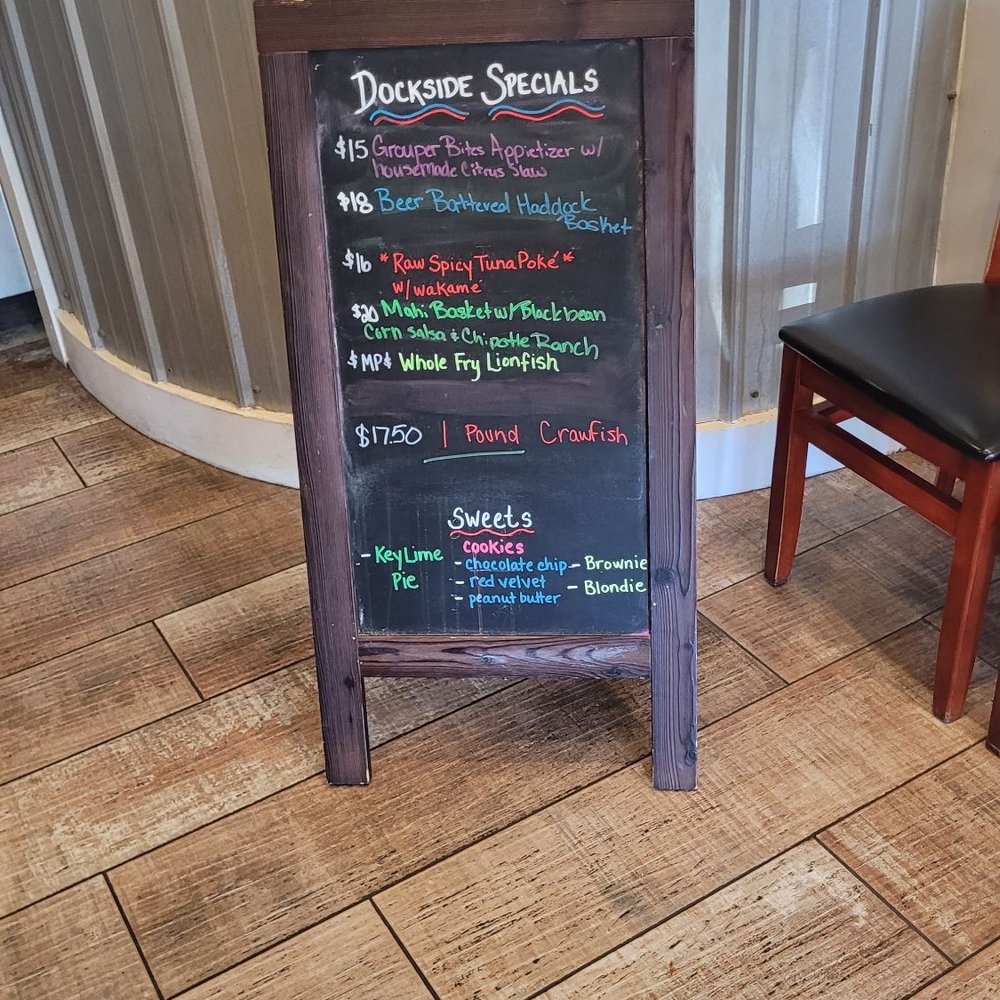 Dockside Specials
$15 Grouper Bites Appietizer w/
housemade Citrus Slaw
$18 Beer Battered Haddock
Basket
$16 *Raw Spicy Tuna Poké*
w/ wakamé
$20 Mahi Basket w/ Black bean
Corn Salsa & Chipotle Ranch
$MP$ Whole Fry Lionfish
$17.50 1 Pound Crawfish
Sweets
- Key Lime
Pie
cookies
- chocolate chip
- red velvet
- peanut butter
- Brownie
- Blondie